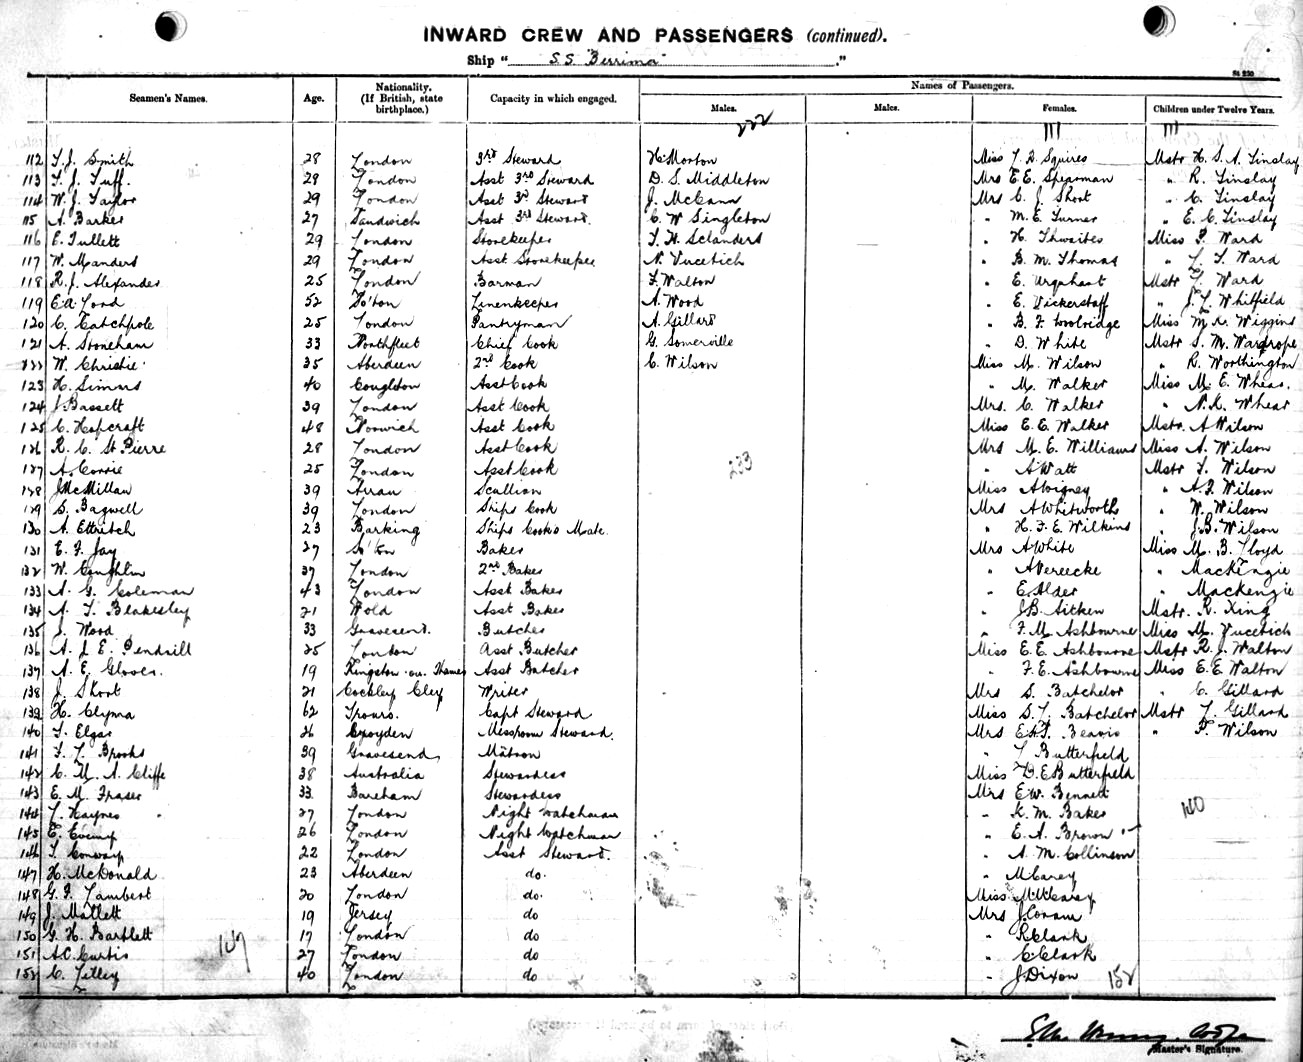 INWARD CREW AND PASSENGERS (continued).
Ship " S.S. "Berrima" ."
St 230
Seamen's Names. Age. Nationality. (If British, state birthplace.) Capacity in which engaged. Names of Passengers.
Males. Males. Females. Children under Twelve Years.
222 111 111
112 T. J. Smith 28 London 3rd Steward H. Morton Miss L. D. Squires Mstr H. S. A. Linslay
113 T. J. Tuff. 28 London Asst 3rd Steward D. S. Middleton Mrs E. E. Spearman " R. Linslay
114 W. J. Taylor 29 London Asst 3rd Steward J. McCann Mrs C. J. Short " C. Linslay
115 A. Barker 27 Sandwich Asst 3rd Steward. C. W Singleton " M. E. Turner " E. C. Linslay
116 E. Tullett 29 London Storekeeper T. H. Sclanders " H. Thwaites Miss P. Ward
117 W. Manders 29 London Asst Storekeeper N. Vucetich " B. M. Thomas " L. T. Ward
118 R. J. Alexander 25 London Barman F. Walton " E. Urquhart Mstr Ward
119 E. A. Lord 52 So'ton Linenkeeper A. Wood " E. Vickerstaff " J. L. Whitfield
120 C. Catchpole 25 London Pantryman A. Gillard " B. F. Woolridge Miss M. K. Wiggins
121 A. Stoneham 33 Northfleet Chief Cook G. Somerville " D. White Mstr S. M. Wardrope
122 W. Christie 35 Aberdeen 2nd Cook C. Wilson Miss M. Wilson " R. Worthington
123 H. Simms 40 Congleton Asst Cook " M. Walker Miss M. E. Whear.
124 J Bassett 39 London Asst Cook Mrs. C. Walker " N. K. Whear
125 C. Hopcraft 48 Norwich Asst Cook Miss E. E. Walker Mstr. A Wilson
126 R. C. St Pierre 28 London Asst Cook Mrs M. E. Williams Miss A. Wilson
127 A. Corrie 25 London Asst Cook 233 " A Watt Mstr T. Wilson
128 J McMillan 39 Arran Scullion Miss A Vigney " A. F. Wilson
129 S. Bagwell 39 London Ships Cook Mrs A Whitworth " W. Wilson
130 A. Ettritch 23 Barking Ships Cook's Mate. " H. F. E. Wilkins " J. B. Wilson
131 E. F. Jay 27 So'ton Baker Mrs A White Miss M. B. Lloyd
132 W. Coughlin 37 London 2nd Baker " A Vereecke " MacKenzie
133 A. G. Coleman 43 London Asst Baker " E Alder " Mackenzie
134 A. T. Blakesley 21 Wold Asst Baker " J. B. Aitken Mstr. R. King
135 J. Wood 33 Gravesend. Butcher " F. M. Ashbourne Miss M. Vucetich
136 A. J. E. Pendrill 25 London Asst Butcher Miss E. E. Ashbourne Mstr R. J. Walton
137 A. E. Glover. 19 Kingston on Thames Asst Butcher " F. E. Ashbourne Miss E. E. Walton
138 J. Short 21 Cockley Cley Writer Mrs S. Batchelor " C. Gillard
139 H. Clyma 62 Truro. Capt Steward Miss S. L. Batchelor Mstr L. Gillard
140 T. Elgar 26 Croyden Messroom Steward. Mrs E. A. J. Beavis " F. Wilson
141 F. L. Brooks 39 Gravesend Matron " L Butterfield
142 C. M. A. Cliffe 38 Australia Stewardess Miss D. E Butterfield
143 E. M. Fraser 33 Bareham Stewardess Mrs E W. Bennett
144 L. Haynes 27 London Night Watchman " K. M. Baker 140
145 E. 26 London Night Watchman " E. A. Brown
146 T. Conway 22 London Asst Steward. " A. M. Collinson
147 H. McDonald 23 Aberdeen do. " M Carey
148 G. F. Lambert 20 London do. Miss M. McCarey
149 J. Mallett 19 Jersey do Mrs J. Coram
150 G. H. Bartlett 17 London do " R Clark
151 A. C. Curtis 147 27 London do " C. Clark
152 C. Tilley 40 London do " J Dixon 152
Master's Signature.